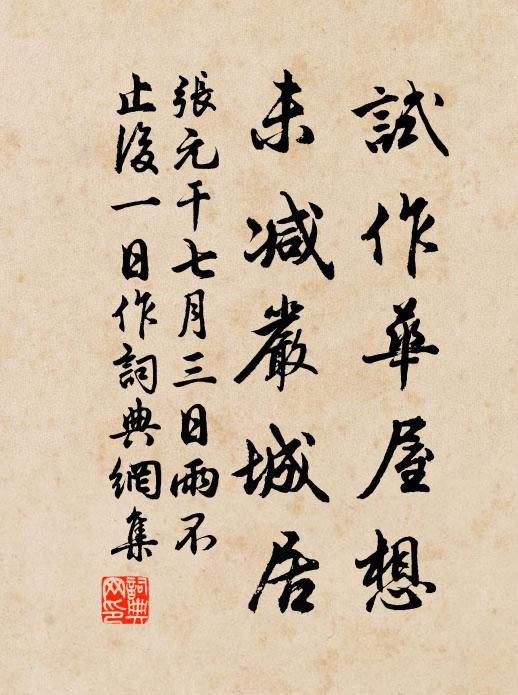 試作華屋想
未减嚴城居
張元干七月三日雨不
止後一日作詞典網集
詞典網印